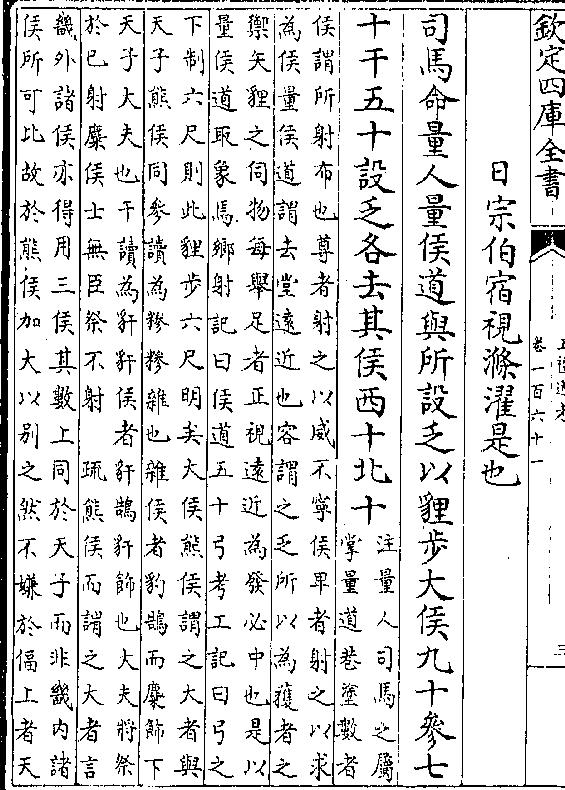 欽定四庫全書
卷一百六十一
三
日宗伯宿視滌濯是也
司馬命量人量侯道與所設乏以貍步大侯九十參七
十干五十設乏各去其侯西十北十
注量人司馬之屬
掌量道巷塗數者
侯謂所射布也尊者射之以威不寧侯卑者射之以求
為侯量侯道謂去堂遠近也容謂之乏所以為獲者之
禦矢貍之伺物每舉足者正視遠近為發必中也是以
量侯道取象焉鄉射記曰侯道五十弓考工記曰弓之
下制六尺則此貍步六尺明矣大侯熊侯謂之大者與
天子熊侯同參讀為糝糝雜也雜侯者豹鵠而麋飾下
天子大夫也干讀為豻豻侯者豻鵠豻飾也大夫將祭
於已射麋侯士無臣祭不射 疏熊侯而謂之大者言
畿外諸侯亦得用三侯其數上同於天子而非畿內諸
侯所可比故於熊侯加大以別之然不嫌於偪上者天